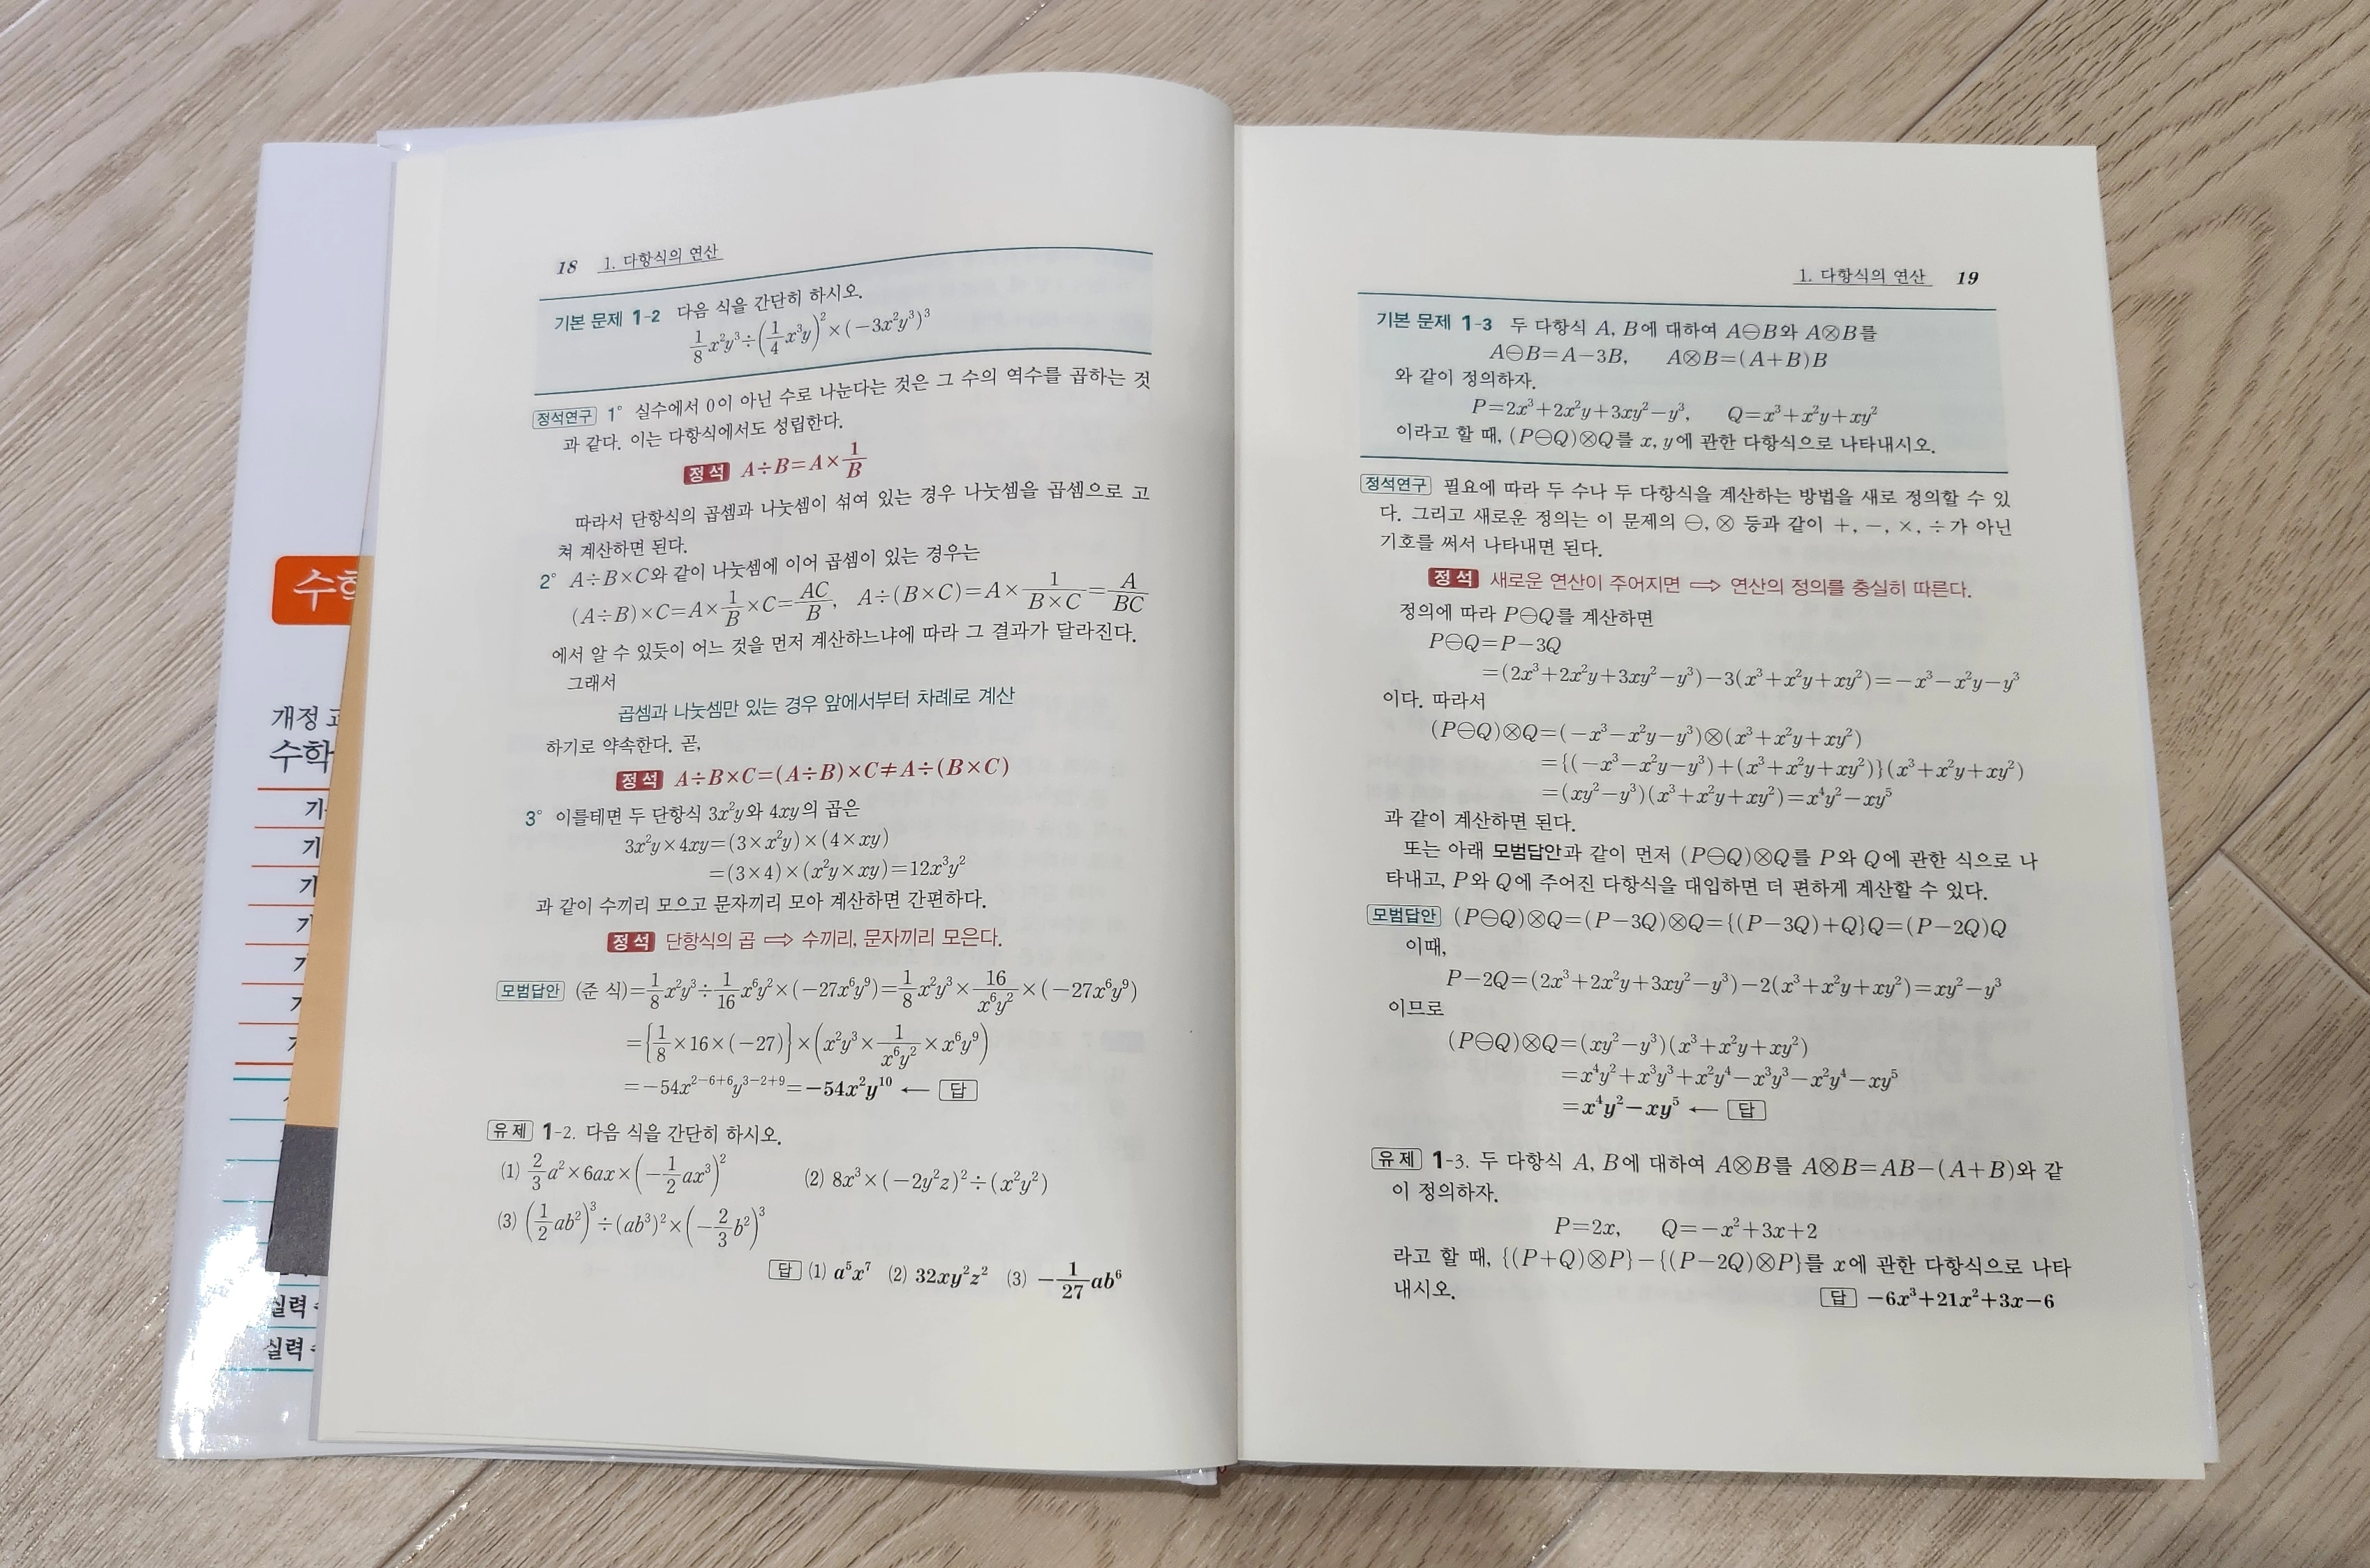 수학
개정
수학
실력
실력
18 1. 다항식의 연산
기본 문제 1-2 다음 식을 간단히 하시오.
$\frac{1}{8}x^2y^3÷\left(\frac{1}{4}x^3y\right)^2×(-3x^2y^3)^3$
정석연구 1° 실수에서 0이 아닌 수로 나눈다는 것은 그 수의 역수를 곱하는 것
과 같다. 이는 다항식에서도 성립한다.
정석 $A÷B=A×\frac{1}{B}$
따라서 단항식의 곱셈과 나눗셈이 섞여 있는 경우 나눗셈을 곱셈으로 고
쳐 계산하면 된다.
2° A÷B×C와 같이 나눗셈에 이어 곱셈이 있는 경우는
$(A÷B)×C=A×\frac{1}{B}×C=\frac{AC}{B}, A÷(B×C)=A×\frac{1}{B×C}=\frac{A}{BC}$
에서 알 수 있듯이 어느 것을 먼저 계산하느냐에 따라 그 결과가 달라진다.
그래서
곱셈과 나눗셈만 있는 경우 앞에서부터 차례로 계산
하기로 약속한다. 곧,
정석 A÷B×C=(A÷B)×C≠A÷(B×C)
3° 이를테면 두 단항식 $3x^2y$와 $4xy$의 곱은
$3x^2y×4xy=(3×x^2y)×(4×xy)$
$=(3×4)×(x^2y×xy)=12x^3y^2$
과 같이 수끼리 모으고 문자끼리 모아 계산하면 간편하다.
정석 단항식의 곱 ⟹ 수끼리, 문자끼리 모은다.
모범답안 (준 식)$=\frac{1}{8}x^2y^3÷\frac{1}{16}x^6y^2×(-27x^6y^9)=\frac{1}{8}x^2y^3×\frac{16}{x^6y^2}×(-27x^6y^9)$
$=\left\{\frac{1}{8}×16×(-27)\right\}×\left(x^2y^3×\frac{1}{x^6y^2}×x^6y^9\right)$
$=-54x^{2-6+6}y^{3-2+9}=-54x^2y^{10}$ ← 답
유제 1-2. 다음 식을 간단히 하시오.
(1) $\frac{2}{3}a^2×6ax×\left(-\frac{1}{2}ax^3\right)^2$ (2) $8x^3×(-2y^2z)^2÷(x^2y^2)$
(3) $\left(\frac{1}{2}ab^2\right)^3÷(ab^3)^2×\left(-\frac{2}{3}b^2\right)^3$
답 (1) $a^5x^7$ (2) $32xy^2z^2$ (3) $-\frac{1}{27}ab^6$
1. 다항식의 연산 19
기본 문제 1-3 두 다항식 A, B에 대하여 A⊖B와 A⊗B를
A⊖B=A-3B, A⊗B=(A+B)B
와 같이 정의하자.
$P=2x^3+2x^2y+3xy^2-y^3, Q=x^3+x^2y+xy^2$
이라고 할 때, (P⊖Q)⊗Q를 x, y에 관한 다항식으로 나타내시오.
정석연구 필요에 따라 두 수나 두 다항식을 계산하는 방법을 새로 정의할 수 있
다. 그리고 새로운 정의는 이 문제의 ⊖, ⊗ 등과 같이 +, -, ×, ÷가 아닌
기호를 써서 나타내면 된다.
정석 새로운 연산이 주어지면 ⟹ 연산의 정의를 충실히 따른다.
정의에 따라 P⊖Q를 계산하면
P⊖Q=P-3Q
$=(2x^3+2x^2y+3xy^2-y^3)-3(x^3+x^2y+xy^2)=-x^3-x^2y-y^3$
이다. 따라서
$(P⊖Q)⊗Q=(-x^3-x^2y-y^3)⊗(x^3+x^2y+xy^2)$
$=\{(-x^3-x^2y-y^3)+(x^3+x^2y+xy^2)\}(x^3+x^2y+xy^2)$
$=(xy^2-y^3)(x^3+x^2y+xy^2)=x^4y^2-xy^5$
과 같이 계산하면 된다.
또는 아래 모범답안과 같이 먼저 (P⊖Q)⊗Q를 P와 Q에 관한 식으로 나
타내고, P와 Q에 주어진 다항식을 대입하면 더 편하게 계산할 수 있다.
모범답안 (P⊖Q)⊗Q=(P-3Q)⊗Q={(P-3Q)+Q}Q=(P-2Q)Q
이때,
$P-2Q=(2x^3+2x^2y+3xy^2-y^3)-2(x^3+x^2y+xy^2)=xy^2-y^3$
이므로
$(P⊖Q)⊗Q=(xy^2-y^3)(x^3+x^2y+xy^2)$
$=x^4y^2+x^3y^3+x^2y^4-x^3y^3-x^2y^4-xy^5$
$=x^4y^2-xy^5$ ← 답
유제 1-3. 두 다항식 A, B에 대하여 A⊗B를 A⊗B=AB-(A+B)와 같
이 정의하자.
$P=2x, Q=-x^2+3x+2$
라고 할 때, {(P+Q)⊗P}-{(P-2Q)⊗P}를 x에 관한 다항식으로 나타
내시오. 답 $-6x^3+21x^2+3x-6$